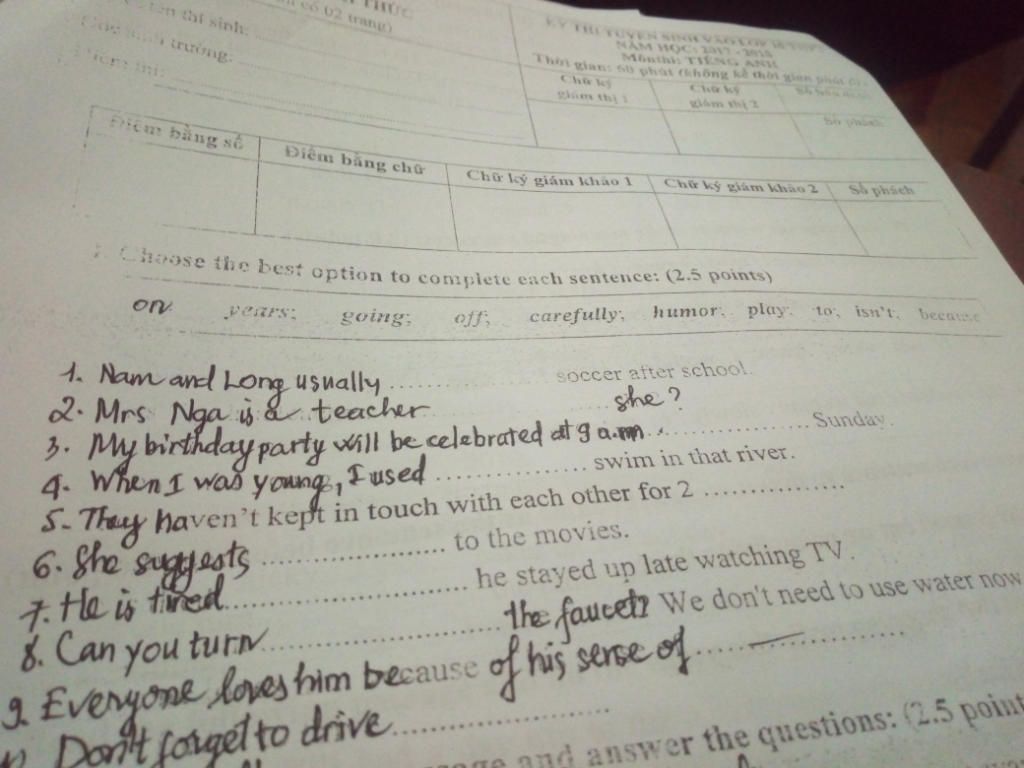 THỨC
có 02 trang)
KỲ THI TUYỂN SINH VÀO LỚP 10 THPT
NĂM HỌC: 2017 - 2018
Môn thi: TIẾNG ANH
Thời gian: 60 phút (không kể thời gian phát đề)
tên thí sinh:
trường:
thi:
Chữ ký giám thị 1
Chữ ký giám thị 2
Số phách
Điểm bằng số
Điểm bằng chữ
Chữ ký giám khảo 1
Chữ ký giám khảo 2
Số phách
Choose the best option to complete each sentence: (2.5 points)
on years; going; off; carefully; humor; play; to; isn't; because
1. Nam and Long usually .................. soccer after school.
2. Mrs Nga is a teacher ........ she?
3. My birthday party will be celebrated at 9 a.m .................... Sunday.
4. When I was young, I used .................. swim in that river.
5. They haven't kept in touch with each other for 2 .................
6. She suggests ...................... to the movies.
7. He is tired............................. he stayed up late watching TV.
8. Can you turn............................the faucet? We don't need to use water now
9. Everyone loves him because of his sense of .........................
Don't forget to drive.........................
and answer the questions: (2.5 point